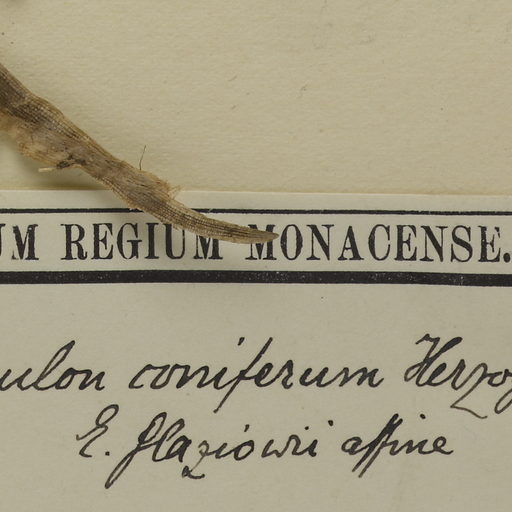 UM REGIUM MONACENSE.
ulon coniferum Herzog
E. glaziowii affine